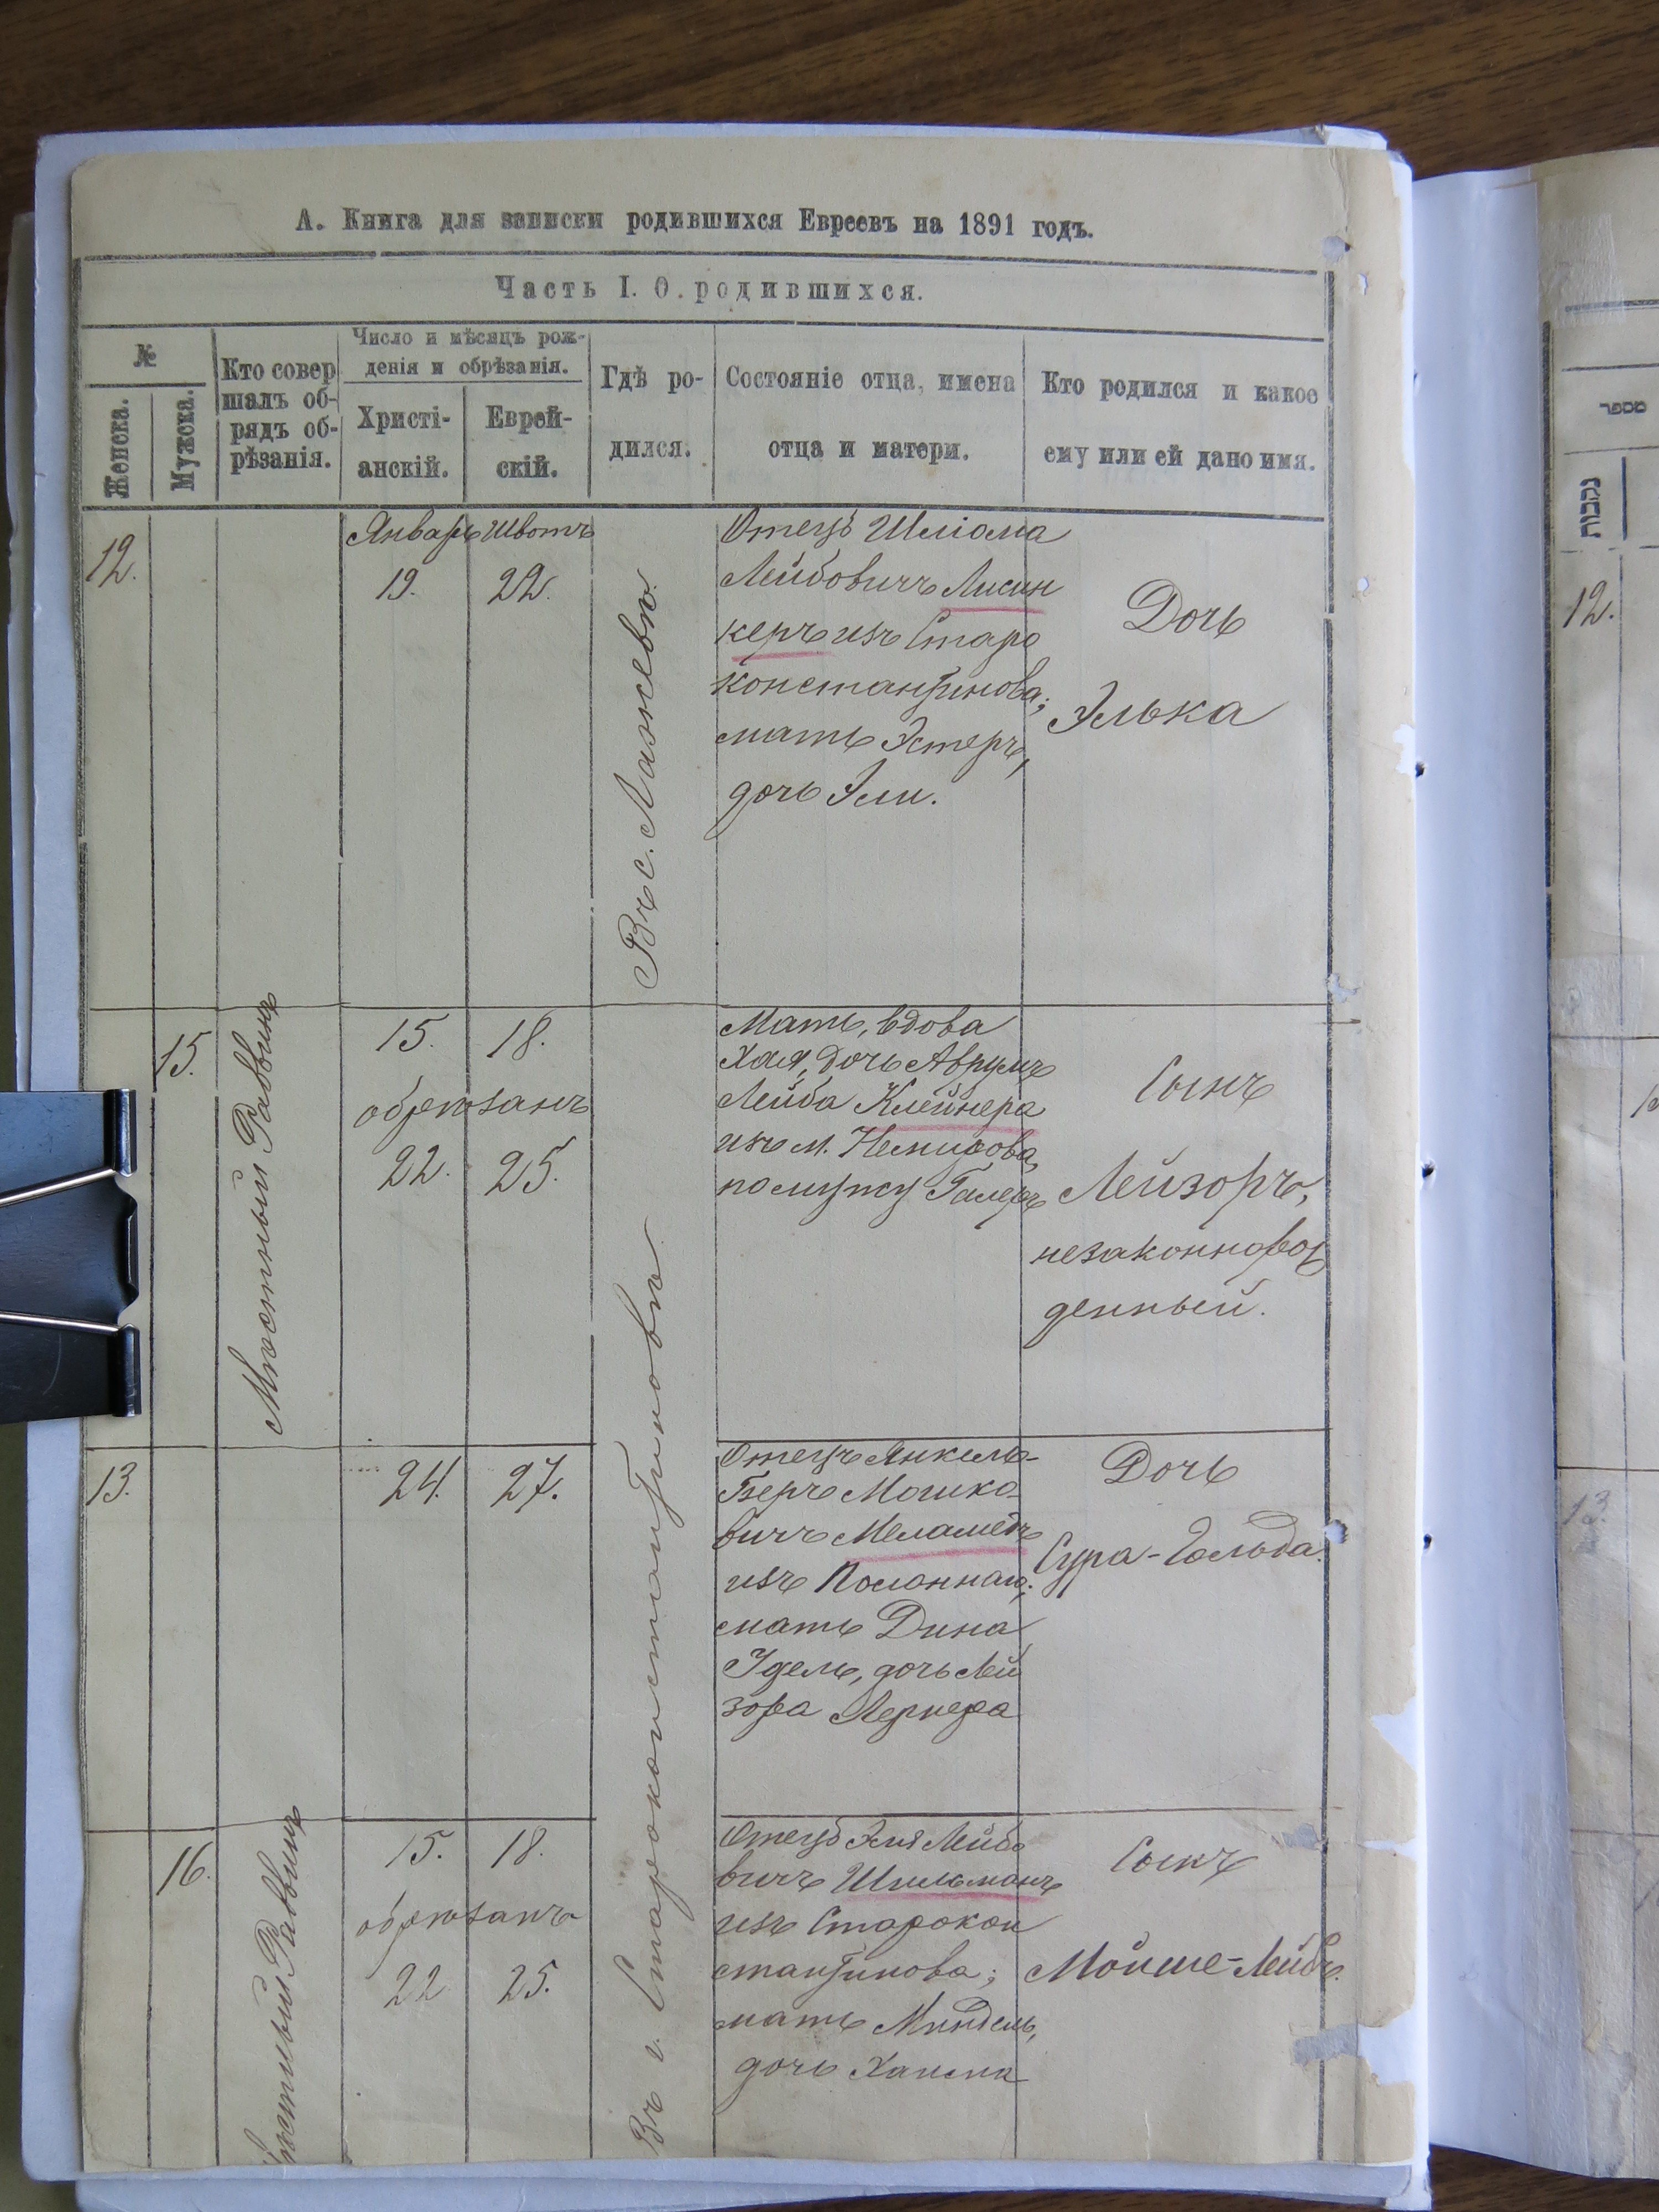 А. Книга для записки родившихся Евреевъ на 1891 годъ.
Часть I. О родившихся.
№
Женска.
Мужска.
Кто совер
шалъ об-
рядъ об-
рѣзанія.
Число и мѣсяцъ рож-
денія и обрѣзанія.
Христі-
анскій.
Еврей-
скій.
Гдѣ ро-
дился.
Состояніе отца, имена
отца и матери.
Кто родился и какое
ему или ей дано имя.
12.
Январь Швотъ
19. 22.
Въ с.
Отецъ Шліома
Лейбовичъ Лисин
керъ изъ Старо
константинова;
мать Эстеръ,
дочь Эли.
Дочь
Элька
15.
Мѣстный Раввинъ
15. 18.
обрѣзанъ
22. 25.
Въ г. Староконстантиновѣ
Мать, вдова
Хая, дочь Аврумъ
Лейба Клейнера
изъ м. Немирова,
по мужу Галеръ
Сынъ
Лейзоръ,
незаконнорож
денный.
13.
24. 27.
Отецъ Янкель-
Беръ Мошко-
вичъ Меламедъ
изъ Полоннаго;
мать Дина
Идель, дочь Лей
зора Лернера
Дочь
Сура-Гольда.
16.
Мѣстный Раввинъ
15. 18.
обрѣзанъ
22 25.
Отецъ Эля Лейбо
вичъ Шильманъ
изъ Старокон
стантинова;
мать Миндель,
дочь
Сынъ
Мойше-Лейбъ.
מספר
נקבות
12.
13.